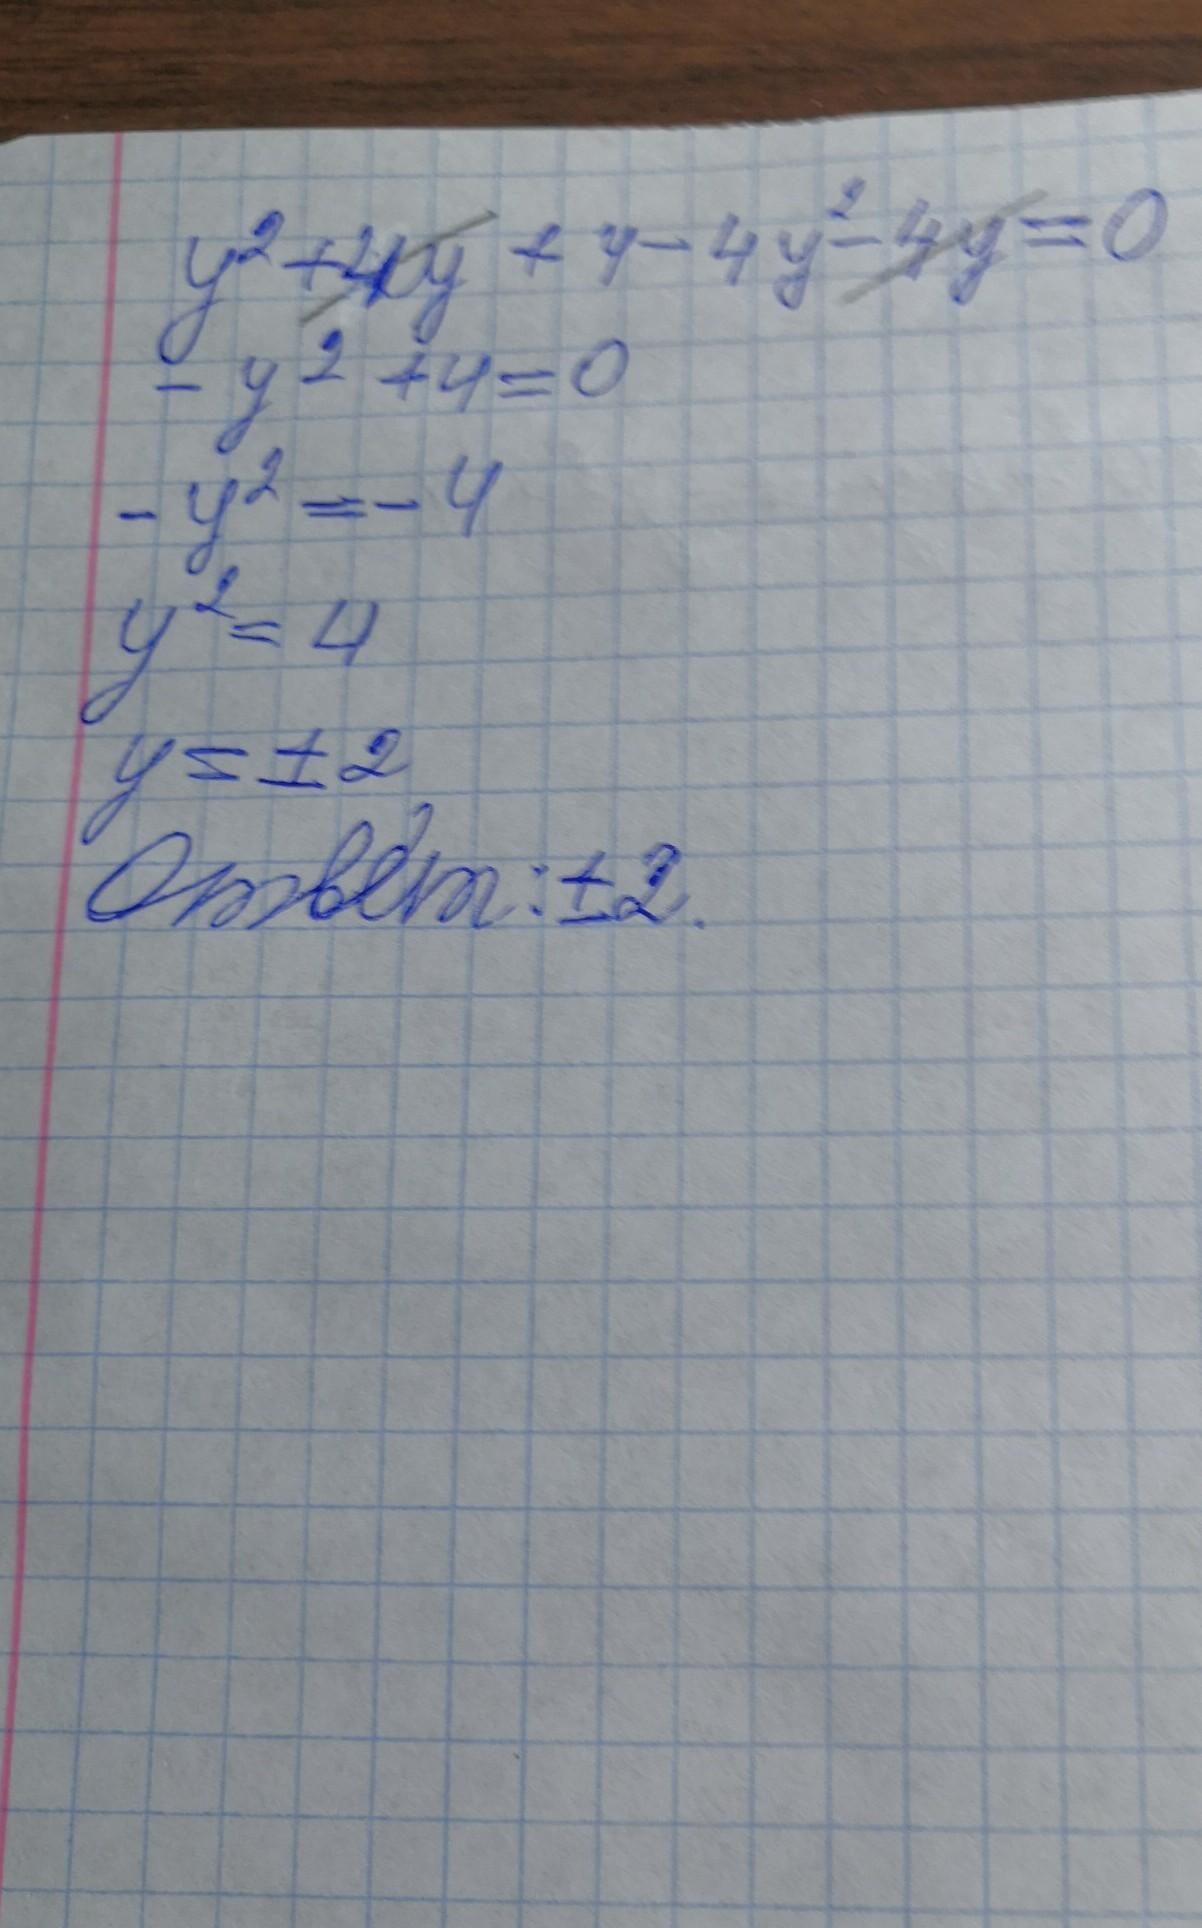 y² + 4y + 4 - 4y² - 4y = 0
- y² + 4 = 0
- y² = - 4
y² = 4
y = ± 2
Ответ: ± 2.